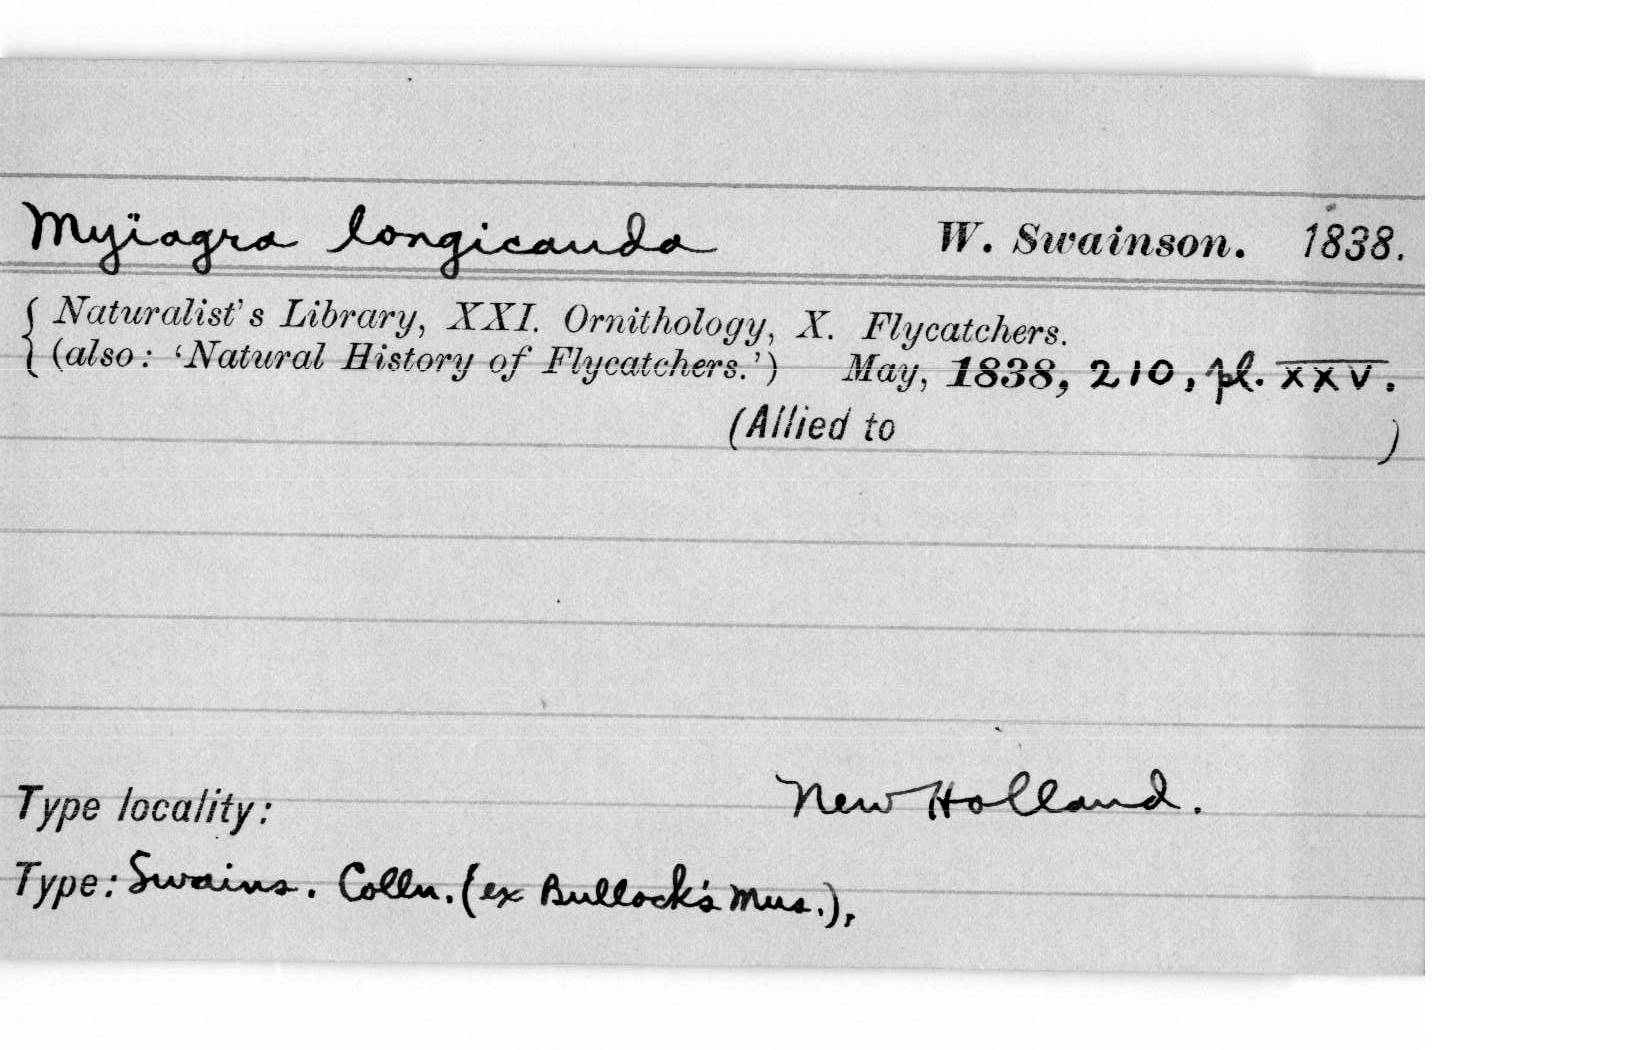 Myïagra longicauda W. Swainson. 1838.
{ Naturalist's Library, XXI. Ornithology, X. Flycatchers.
(also: 'Natural History of Flycatchers.') May, 1838, 210, pl. XXV.
(Allied to )
Type locality: New Holland.
Type: Swains. Colln. (ex Bullock's Mus.),